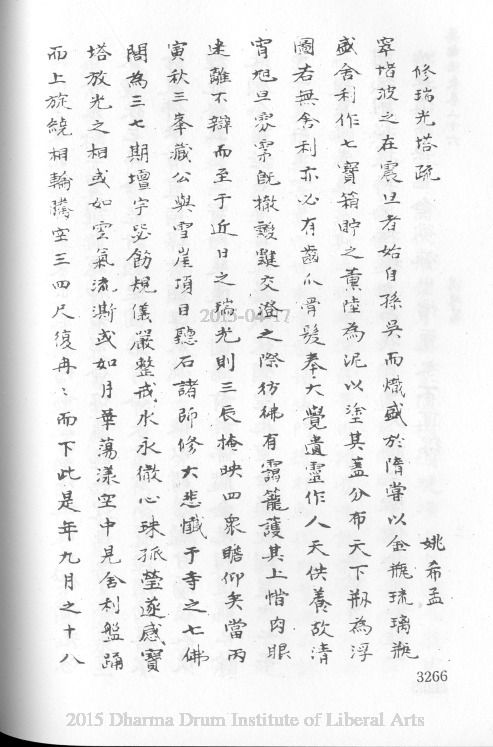 修瑞光塔疏
姚希孟
窣堵波之在震旦者始自孫吳而熾盛於隋嘗以金瓶琉璃瓶
盛舍利作七寶箱貯之薰陸為泥以塗其蓋分布天下剏為浮
圖若無舍利亦必有齒爪骨髮奉大覺遺靈作人天供養故清
宵旭旦雰霂既撤靉靆交澄之際彷彿有靄籠護其上惜肉眼
迷離不辯而至于近日之瑞光則三辰掩映四衆瞻仰矣當丙
寅秋三峯藏公與雪崖頂目聽石諸師修大悲懺于寺之七佛
閣為三七期壇宇毖飭規儀嚴整戒水永徹心珠孤瑩遂感寶
塔放光之相或如空氣流澌或如月華蕩漾空中見舍利盤踊
而上旋繞相輪騰空三四尺復冉〻而下此是年九月之十八
3266
2015-04-17
2015 Dharma Drum Institute of Liberal Arts